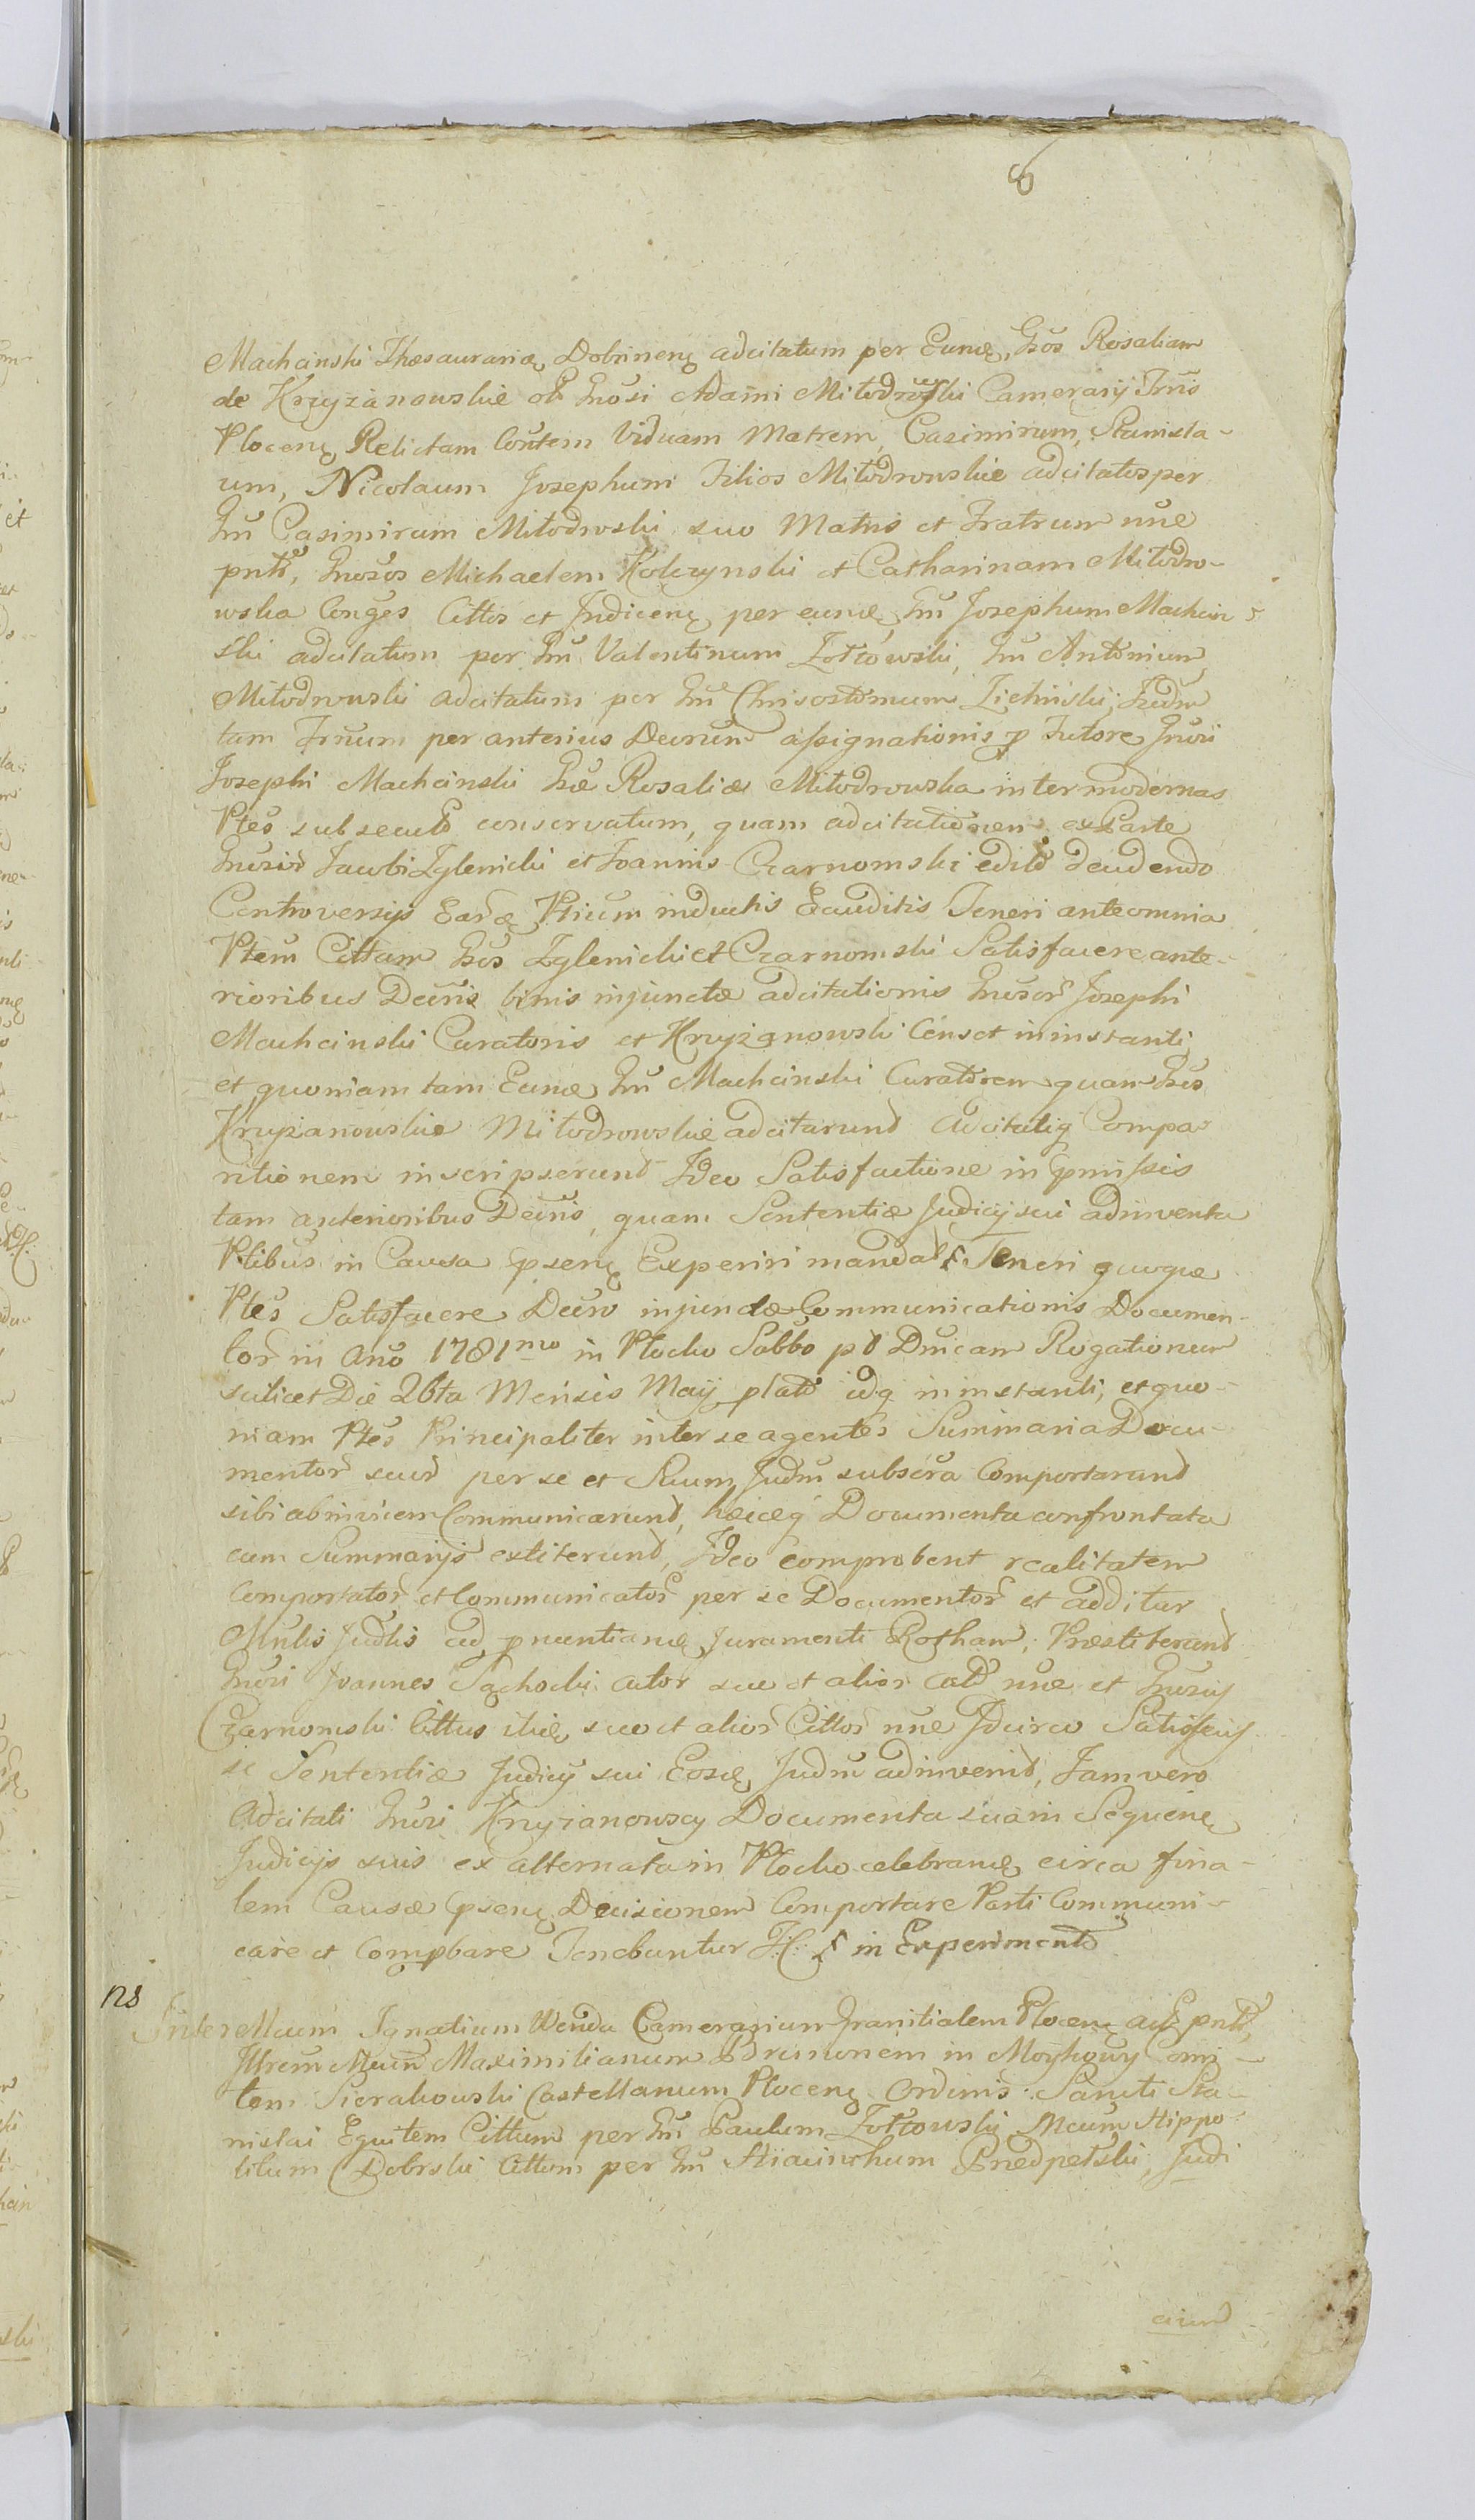 6
Machcinski Thesaurariæ Dobrinenę adcitatum per Eundę, Gsos Rosaliam
de Krzyżanowskie olt Gnosi Adami Miłodrowski Camerarij Trnis
Plocenę Relictam Contem Viduam Matrem, Casimirum, Stanisla-
um, Nicolaum Josephum Filios Miłodrowskie adcitatos per
Gnu Casimirum Miłodrwski suo Matris et Fratrum nne
pntū, Gnosos Michaelem Kolczynski et Catharinam Miłodro-
wska Conges Cittos et Judicenę per eundę Gnu Josephum Machcin
ski adcitatum per Gnu Valentinum Zołtowski, Gnu Antonium
Miłodrowski adcitatum per Gnu Chrisostomum Zielinski, Judm
tam Trnum per anterius Decrum assignationis p Tutore Gnosi
Josephi Machcinski Gsæ Rosaliæ Miłodrowska inter modernas
Ptes subsecutū conservatum, quam adcitationem ex Parte
Gnosor Jacobi Zglenicki et Joannis Czarnomski editū deudendo
Controversijs Earūdę Ptium inductis Exauditis Teneri ante omnia
Ptem Cittam Gsos Zglenicki et Czarnomski Satisfacere ante-
rioribus Decris binis injunctæ adcitationis Gnosor Josephi
Machcinski Curatoris et Krzyżanowski Censet in instanti,
et quoniam tam Eundę Gnu Machcinski Curatorem quam Gsos
Krzyżanowskie Miłodrowskie adcitarunt Adcitatiq Compa-
ritionem inscripserunt Ideo Satisfactione in pmissis
tam anterioribus Decris, quam Sententiæ Judicij sui adinventa
Ptibus in Causa psenę Experiri mandat Teneri quoque
Ptes Satisfacere Decro injunctæ Communicationis Documen-
tor in Ano 1781mo in Plocko Sabbo pt Dnicam Rogationum
scilicet Die 26ta Mensis Maij platū idq in instanti, et quo-
niam Ptes Principaliter inter se agentes Summaria Docu-
mentor suor per se et Suum Judm subscra Comportarunt
sibi ab invicem Communicarunt, hæcæq Documenta confrontata
cum Summarijs extiterunt, Ideo comprobent realitatem
Comportator et Communicator per se Documentor et additur
Mnlis Judlis ad pnuntiandę Juramenti Rotham, Præstiterunt
Gnosi Joannes Sąchocki actor suo et alior actū nne et Gnosus
Czarnomski Cittus itidę suo et alior Cittor nne Idcirco Satisfecij-
se Sententiæ Judicij sui Eosdę Judm adinvenit, Jam vero
Adcitati Gnosi Krzyżanowscy Documenta sua in Sequenę
Judicijs suis ex alternata in Plocko celebrandę circa fina-
lem Causæ psenę Decisionem Comportare Parti Communi-
care et Compbare Tenebuntur H: in Experimento
ns
Inter Mcum Ignatium Wenda Camerarium Granitialem Plocenę actū pntū,
Illrem Mcum Maximilianum Brunonem in Moykowy Comi-
tem Sierakowski Castellanum Plocenę Ordinis Sancti Sta-
nislai Equitem Cittum per Gnu Paulum Zołtowski, Mcum Hippo-
litum Dobrski Cittum per Gnu Hiacinthum Przedpełski, Judi
cium